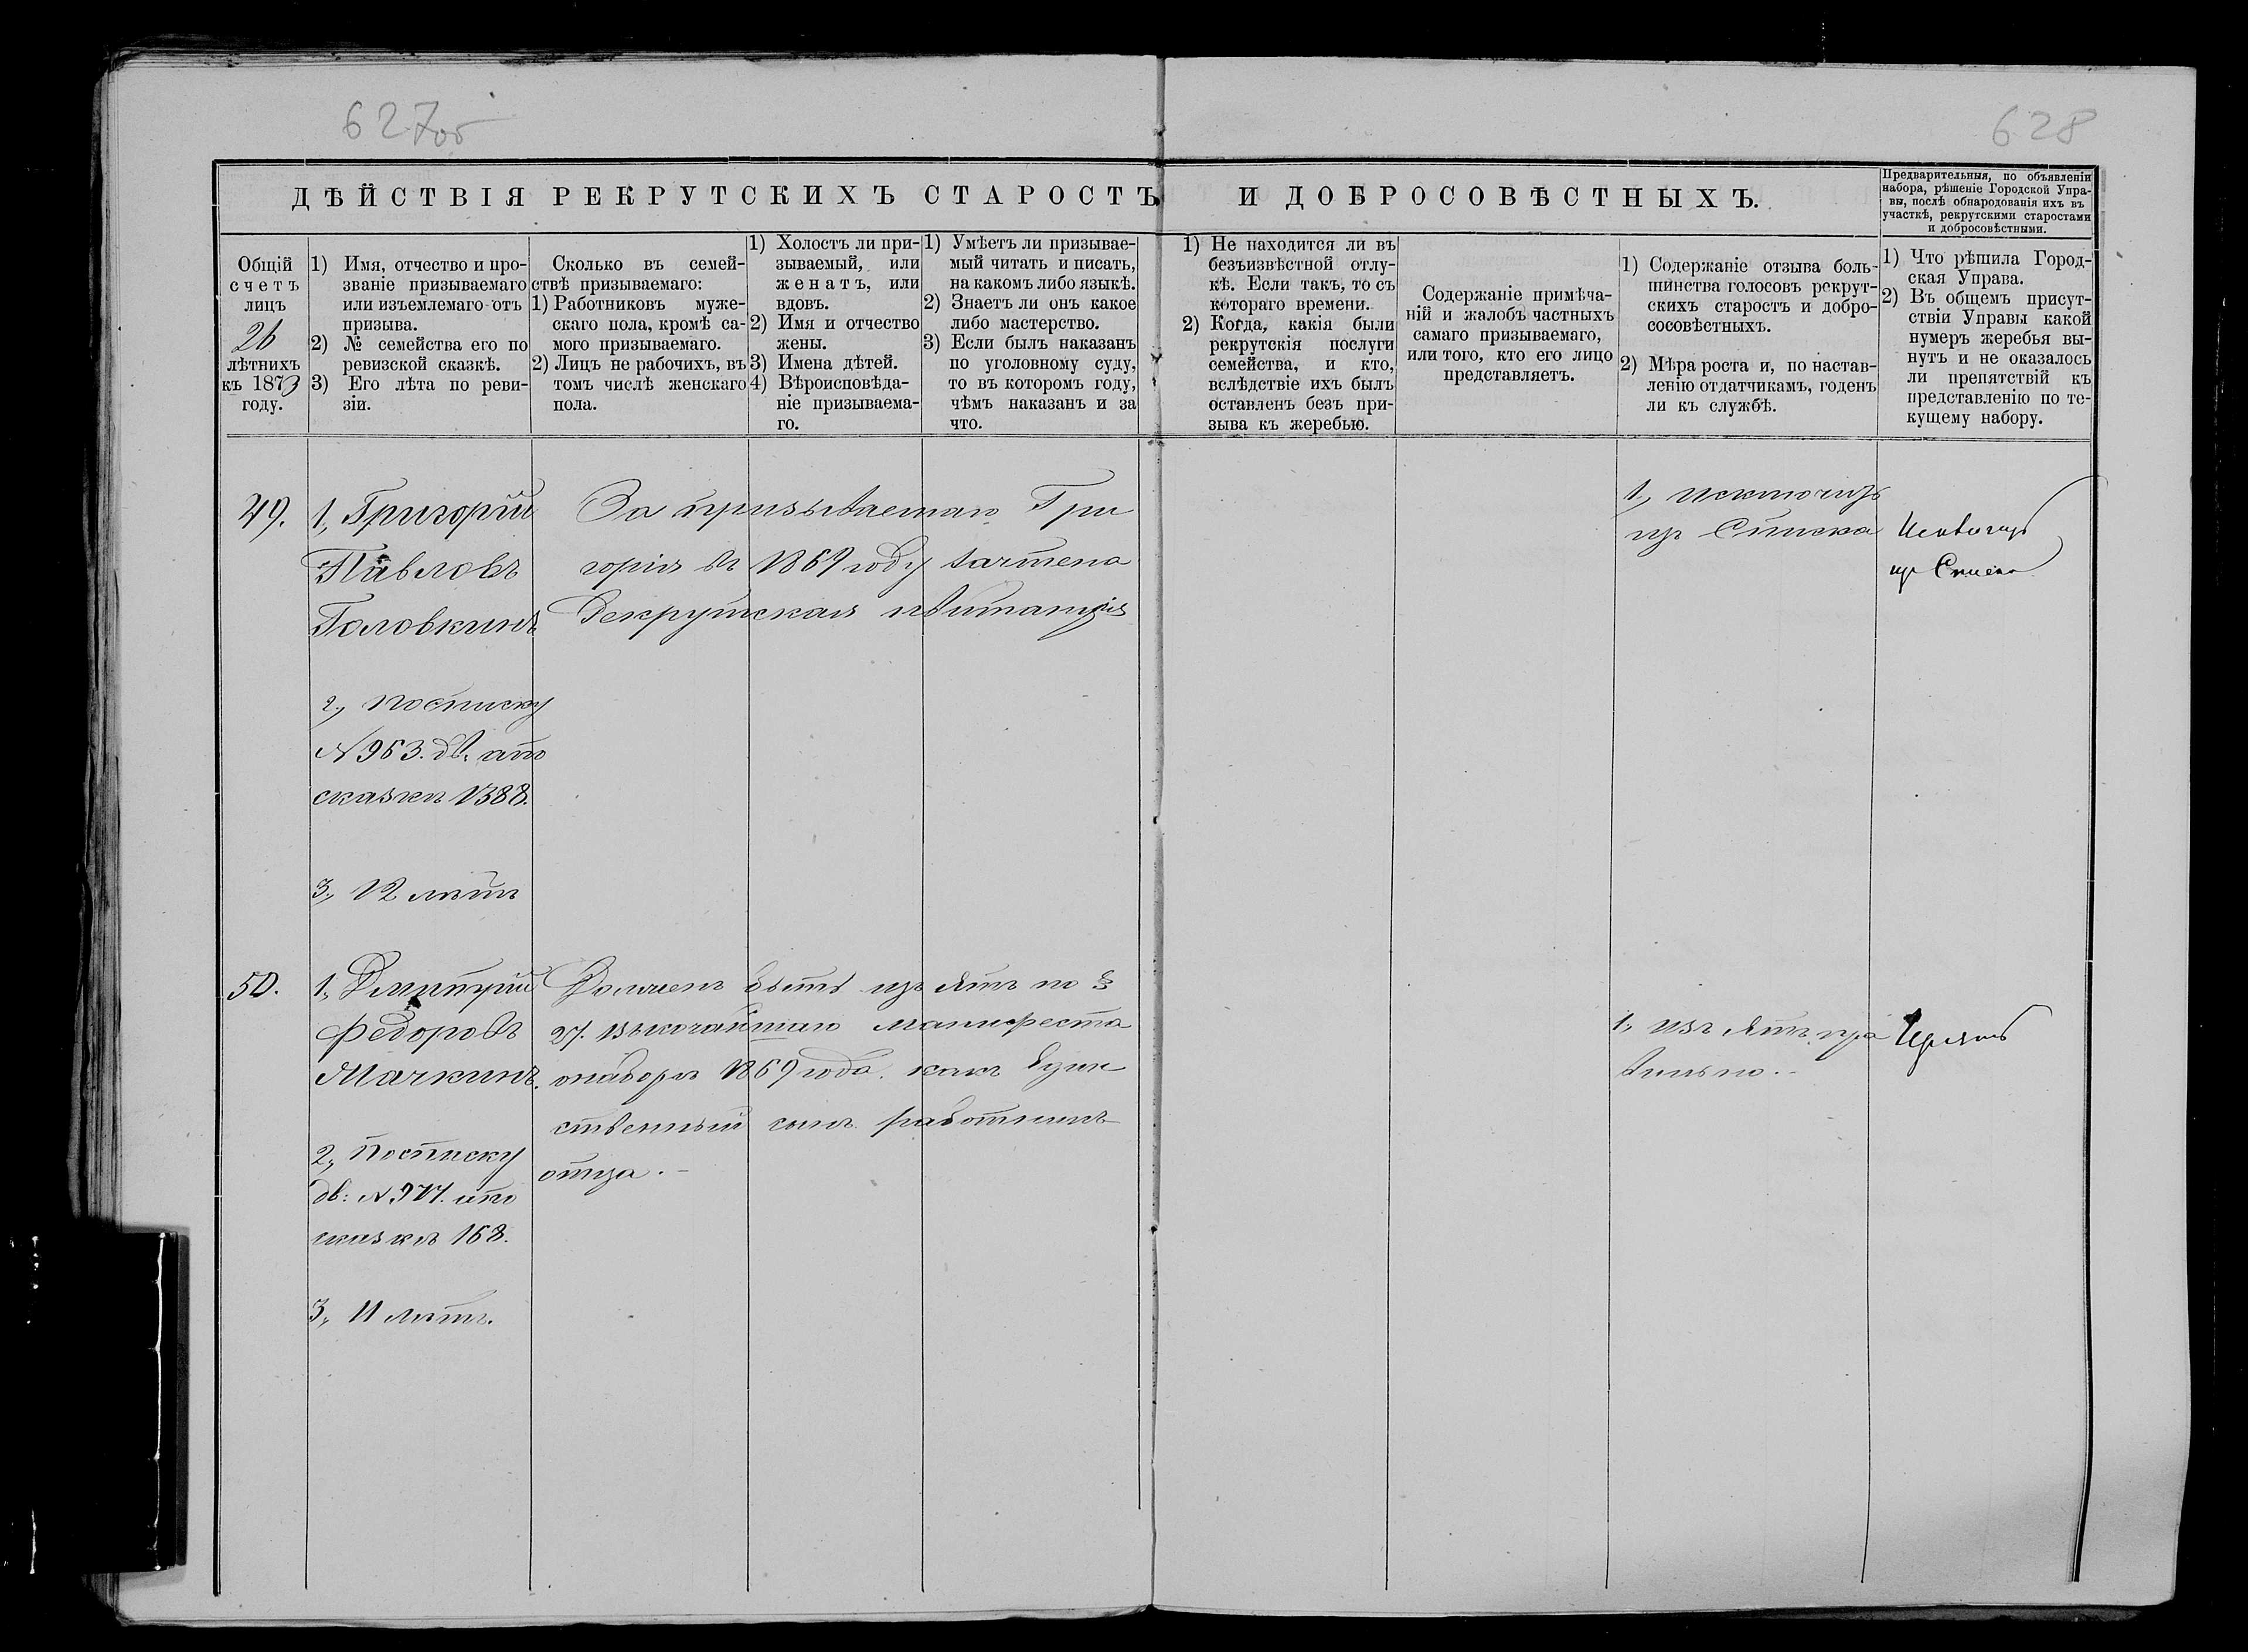 627об
628
ДѢЙСТВІЯ РЕКРУТСКИХЪ СТАРОСТЪ И ДОБРОСОВѢСТНЫХЪ.
Предварительныя, по объявленіи
набора, рѣшеніе Городской Упра-
вы, послѣ обнародованія ихъ въ
участкѣ, рекрутскими старостами
и добросовѣстными.
Общій
счетъ
лицъ
26
лѣтнихъ
къ 1873
году.
1) Имя, отчество и про-
званіе призываемаго
или изъемлемаго отъ
призыва.
2) № семейства его по
ревизской сказкѣ.
3) Его лѣта по реви-
зіи.
Сколько въ семей-
ствѣ призываемаго:
1) Работниковъ муже-
скаго пола, кромѣ са-
мого призываемаго.
2) Лицъ не рабочихъ, въ
томъ числѣ женскаго
пола.
1) Холостъ ли при-
зываемый, или
женатъ, или
вдовъ.
2) Имя и отчество
жены.
3) Имена дѣтей.
4) Вѣроисповѣда-
ніе призываема-
го.
1) Умѣетъ ли призывае-
мый читать и писать,
на какомъ либо языкѣ.
2) Знаетъ ли онъ какое
либо мастерство.
3) Если былъ наказанъ
по уголовному суду,
то въ которомъ году,
чѣмъ наказанъ и за
что.
1) Не находится ли въ
безъизвѣстной отлу-
кѣ. Если такъ, то съ
котораго времени.
2) Когда, какія были
рекрутскія послуги
семейства, и кто,
вслѣдствіе ихъ былъ
оставленъ безъ при-
зыва къ жеребью.
Содержаніе примѣча-
ній и жалобъ частныхъ
самаго призываемаго,
или того, кто его лицо
представляетъ.
1) Содержаніе отзыва боль-
шинства голосовъ рекрут-
скихъ старостъ и добро-
сосовѣстныхъ.
2) Мѣра роста и, по настав-
ленію отдатчикамъ, годенъ
ли къ службѣ.
1) Что рѣшила Город-
ская Управа.
2) Въ общемъ присут-
ствіи Управы какой
нумеръ жеребья вы-
нутъ и не оказалось
ли препятствій къ
представленію по те-
кущему набору.
49.
1, Григорій
Павловъ
Головкинъ
2, посписку
№ 963. дв. апо
сказкѣ 1388.
3, 12 лѣтъ
За призываемаго Гри
горія въ 1869 году зачтена
Рекрутская квитанція
1, исключить
изъ Списка
Исключить
изъ Списка
50.
1, Дмитрій
Федоровъ
Мачкинъ.
2, посписку
дв: № 977. ипо
сказкѣ 168.
3, 11 лѣтъ.
Долженъ быть изъятъ по §
27. Высочайшаго манифеста
онаборѣ 1869 года. какъ един
ственный сынъ работникъ
отца. -
1, изъятъ пра
вильно. -
Изъятъ